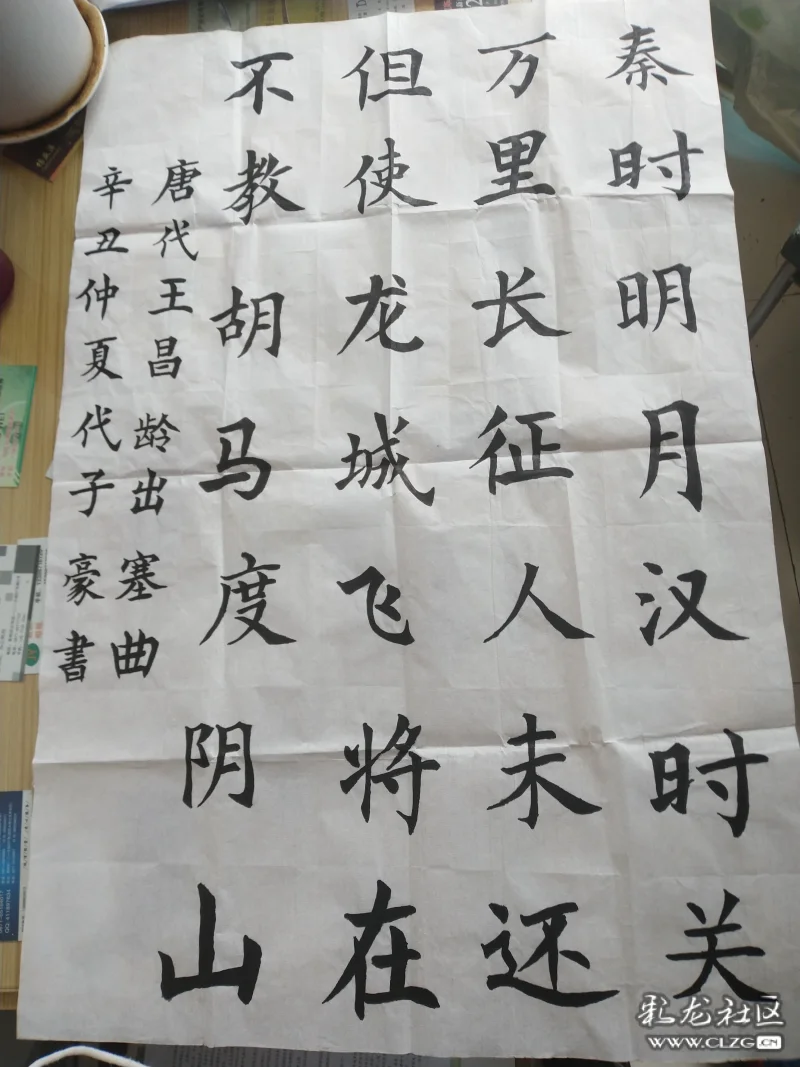 秦时明月汉时关
万里长征人未还
但使龙城飞将在
不教胡马度阴山
唐代王昌龄出塞曲
辛丑仲夏代子豪書
彩龙社区
WWW.CLZG.CN